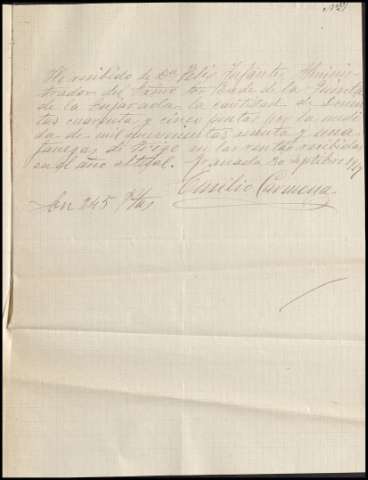 He recibido de Dn Felix Infante, Adminis-
trador del Exmo Sor Conde de la
de la Enjarada la cantidad de Doscien-
tas cuarenta y cinco pesetas por la medi-
da de mil novecientas y una
fanegas de trigo en las rentas recibidas
en el año actual. Granada 30 septbre
Emilio Carmona
Son 245 Ptas